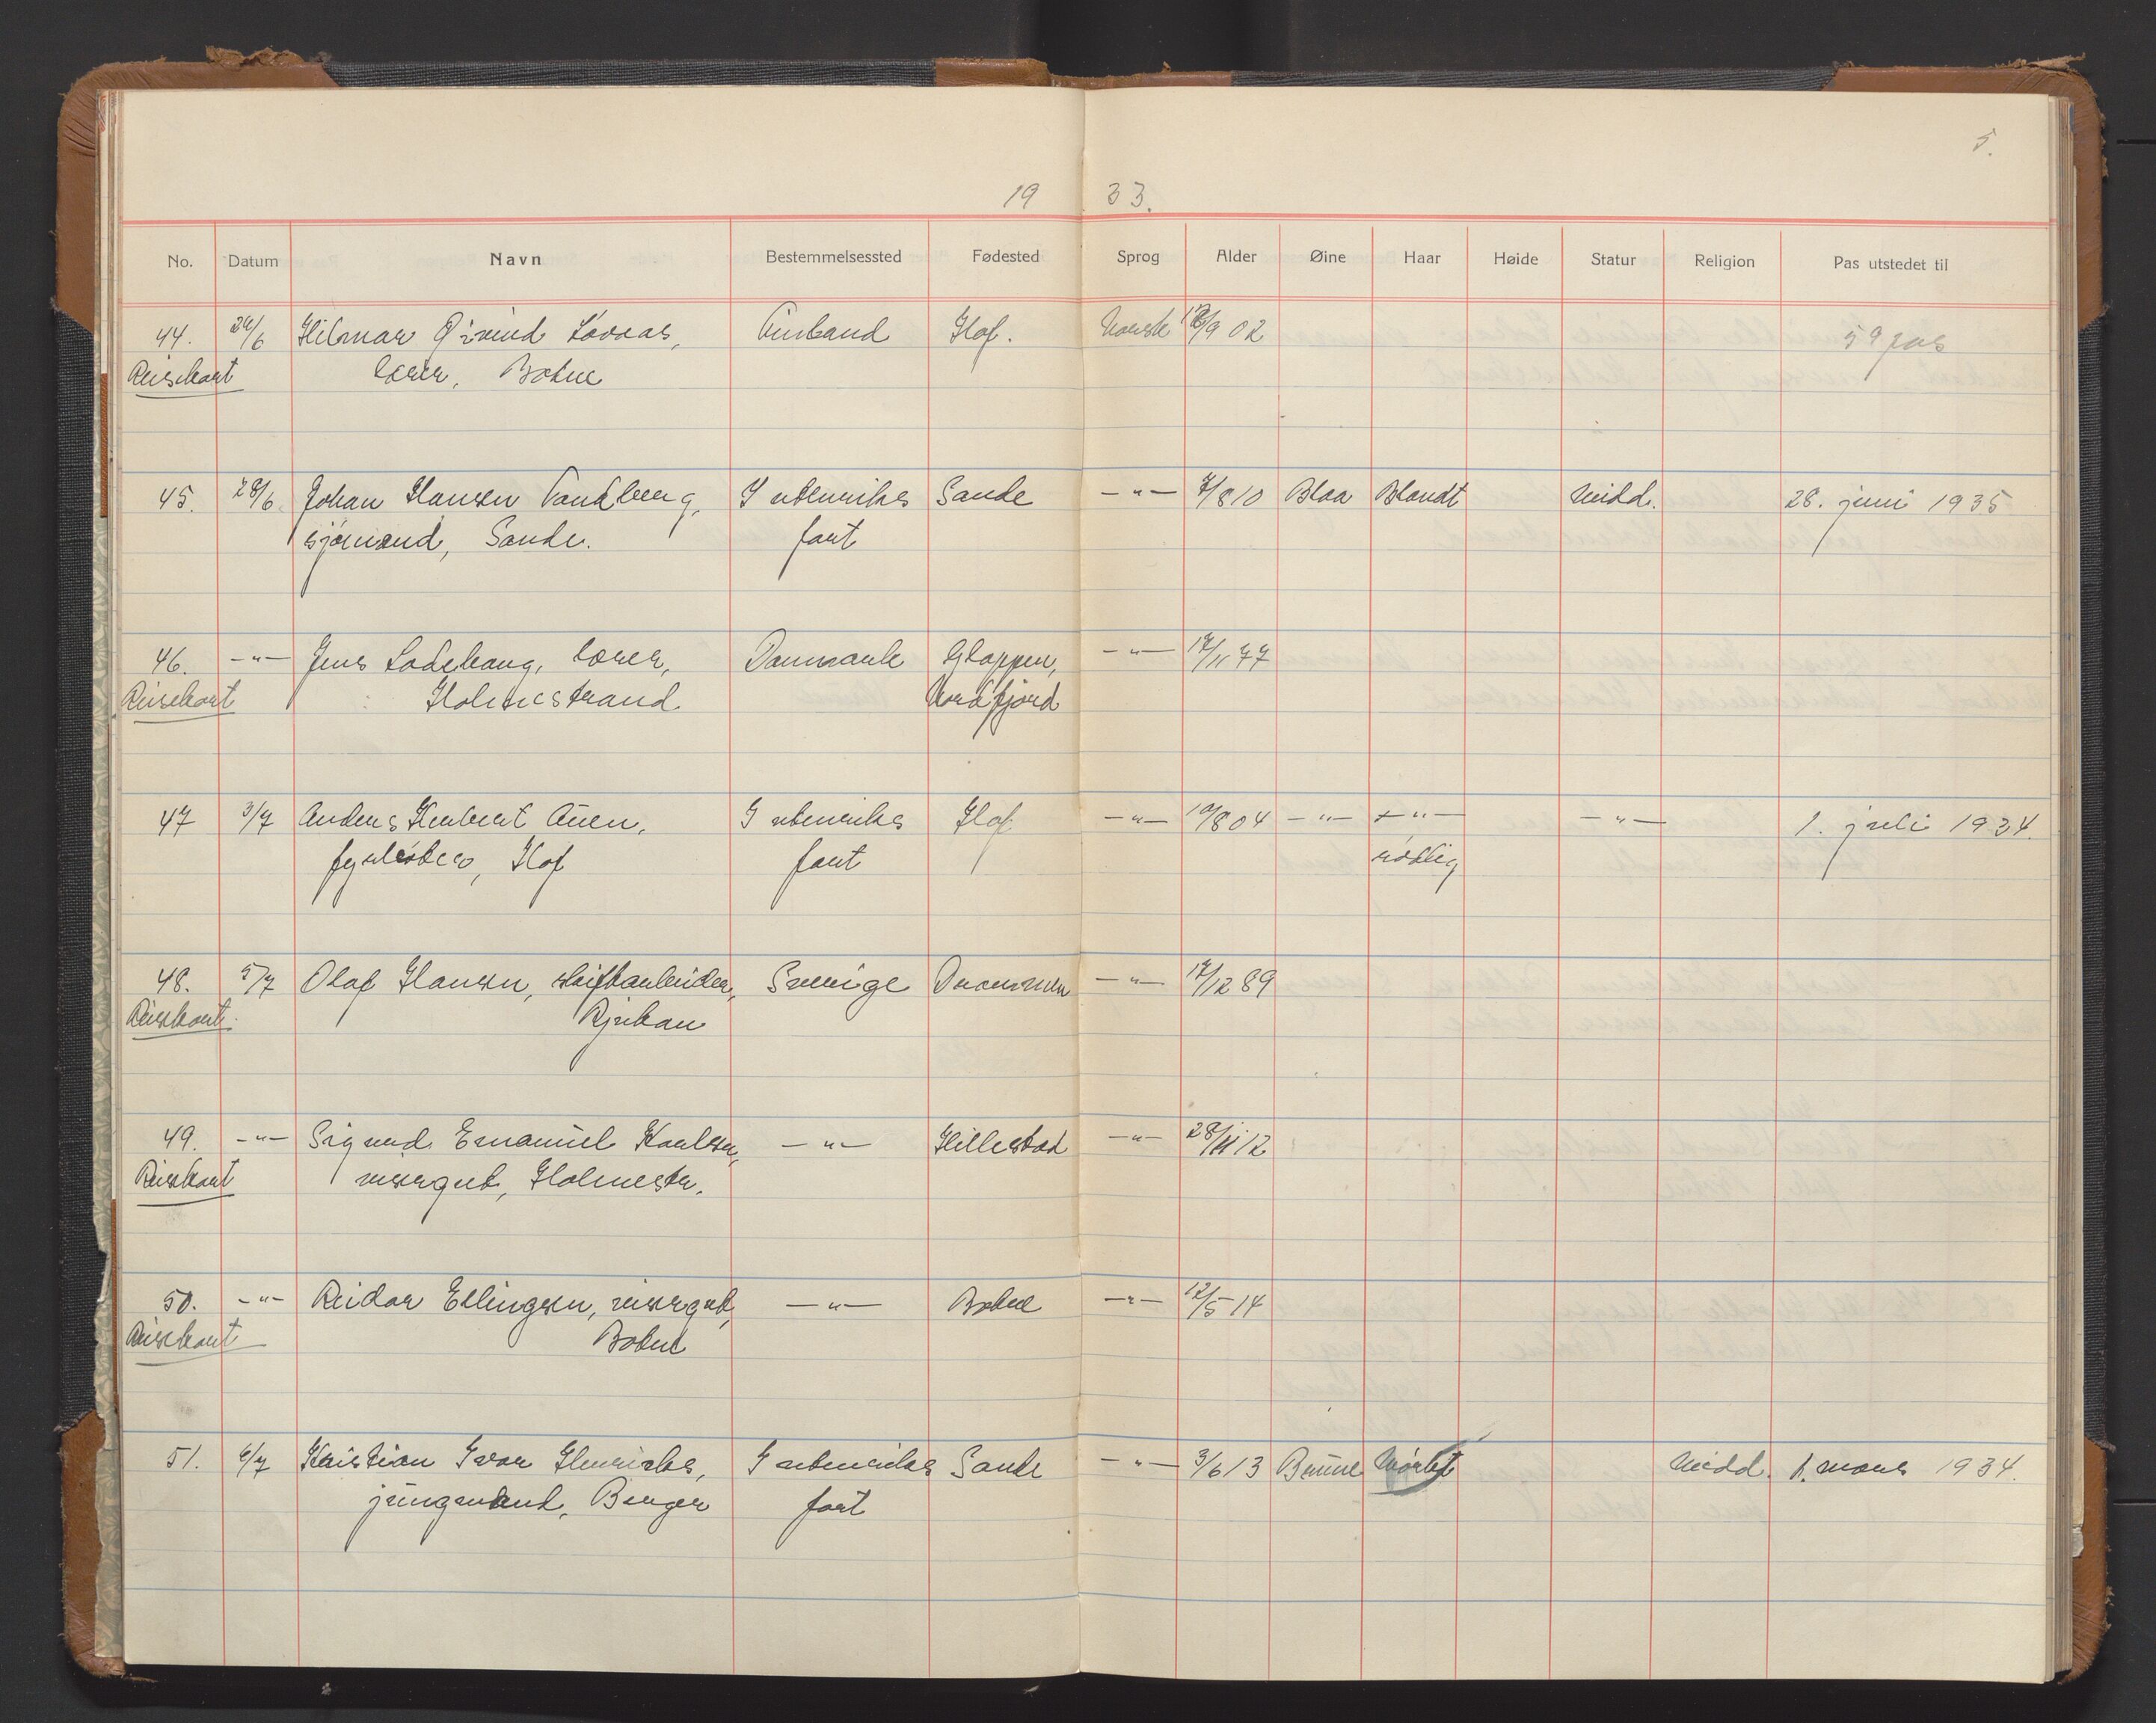 5.
19 33.
No. Datum Navn Bestemmelsessted Fødested Sprog Alder Øine Haar Høide Statur Religion Pas utstedet til
44. 24/6 Hilmar Øivind Løvaas, Hof. Norsk 12/9 02
Reisekort lærer, Botne
45. 28/6 Johan Hansen Sandberg, I utenriks Sande -"- 7/8 10 Blaa Blondt Midd. 28. juni 1935
sjømand, Sande. fart
46. -"- Jens Ladehaug, lærer, Danmark Gloppen, -"- 17/11 77
Reisekort Holmestrand Nordfjord
47 3/7 Anders Herbert Auen, I utenriks Hof -"- 19/8 04 -"- -"- -"- 1. juli 1934.
fyrbøter, Hof fart rødlig
48. 5/7 Olaf Hansen, skiftarbeider, Sverige Drammen -"- 17/12 89
Reisekort. Rjukan
49. -"- Sigurd Emanuel Karlsen, -"- Hillestad -"- 28/11 12
Reisekort visergut, Holmestr.
50. -"- Reidar Ellingsen, visergut, -"- Botne -"- 12/5 14
Reisekort Botne
51. 6/7 Kristian Ivar Henriks, I utenriks Sande -"- 3/6 13 Brune Mørkt Midd. 1. mars 1934.
jungmand, Berger fart